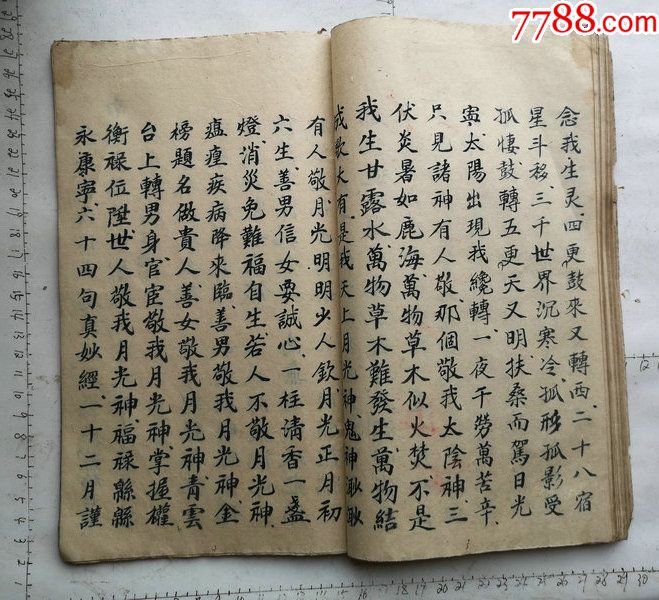 7788.com
念我生灵四更鼓來又轉西二十八宿
星斗移三千世界沉寒冷孤形孤影受
孤悽鼓轉五更天又明扶桑而駕日光
寅太陽出現我纔轉一夜千勞萬苦辛
只見諸神有人敬那個敬我太陰神三
伏炎暑如鹿海萬物草木似火焚不是
我生甘露水萬物草木難發生萬物結
大有是我天上月光神鬼神
有人敬月光明明少人欽月光正月初
六生善男信女要誠心一柱清香一盞
燈消災免難福自生若人不敬月光神
瘟瘽疾病降來臨善男敬我月光神金
榜題名做貴人善女敬我月光神青雲
台上轉男身官宦敬我月光神掌握權
衡祿位陞世人敬我月光神福祿縣縣
永康寧六十四句真妙經一十二月謹